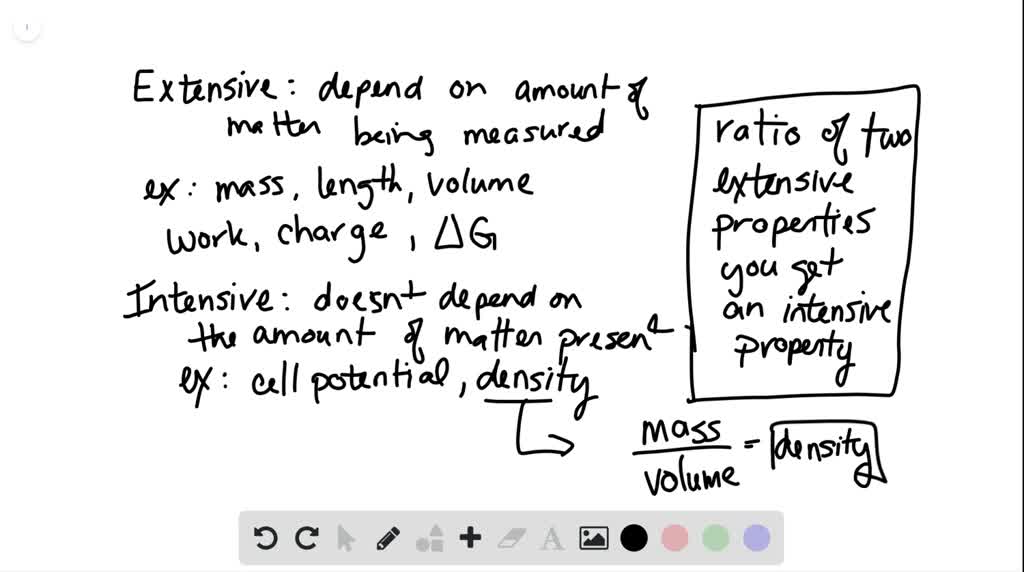 Extensive: depend on amount of
matter being measured
ex: mass, length, volume
work, charge, ΔG
Intensive: doesn't depend on
the amount of matter present
ex: cell potential, density
ratio of two
extensive
properties
you get
an intensive
property
mass
volume
= density
A